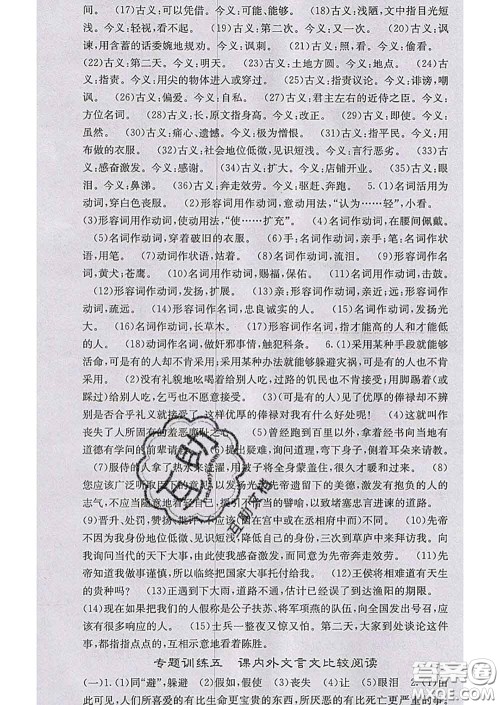 间。 (17)古义：可以凭借。今义：可能、能够。 (18)古义：浅陋，文中指目光短
浅。今义：轻视，看不起。 (19)古义：第二次。今义：又一次。 (20)古义：讽
谏，用含蓄的话委婉地规劝。今义：讽刺。 (21)古义：照，看。今义：偷看。
(22)古义：第二天。今义：明天。 (23)古义：土地方圆。今义：地点。 (24)古
义：指责。今义：用尖的物体进入或穿过。 (25)古义：指责议论。今义：诽谤，嘲
讽。 (26)古义：偏爱。今义：自私。 (27)古义：君主左右的近侍之臣。今义：
方位名词。 (28)古义：长，原文指身高。今义：改正。 (29)古义：即使。今义：
虽然。 (30)古义：痛心、遗憾。今义：极为憎恨。 (31)古义：指平民。今义：用
布做的衣服。 (32)古义：社会地位低微，见识短浅。今义：言行恶劣。 (33)古
义：感奋激发。今义：感谢。 (34)古义：扩大。今义：店铺开业。 (35)古义：眼
泪。今义：鼻涕。 (36)古义：奔走效劳。今义：驱赶、奔跑。 5.(1)名词活用为
动词，穿白色丧服。 (2)形容词用作动词，意动用法，“认为……轻”，小看。
(3)形容词用作动词，使动用法，“使……扩充”。 (4)名词作动词，在腰间佩戴。
(5)名词作动词，穿着破旧的衣服。 (6)手：名词作动词，亲手；笔：名词作状
语，用笔。 (7)动词作状语，站着。 (8)名词作动词，流泪。 (9)形容词作名
词，黄犬；苍鹰。 (10)名词用作动词，赐福，保佑。 (11)名词用作动词，击鼓。
(12)形容词作动词，发扬，扩展。 (13)亲：形容词作动词，亲近；远：形容词作
动词，疏远。 (14)形容词作名词，忠良诚实的人。 (15)名词作动词，发扬光
大。 (16)名词作动词，长草木。 (17)形容词作名词，指才能高的人和才能低
的人。 (18)动词用作名词，做奸邪事情，触犯科条。 6.(1)采用某种手段就能够
活命，可是有的人却不肯采用；采用某种办法就能够躲避灾祸，可是有的人却不肯
采用。 (2)没有礼貌地吆喝着给别人吃，过路的饥民也不肯接受；用脚踢着(或
踩过)给别人吃，乞丐也不愿意接受。 (3)(可是有的人)见了优厚的俸禄却不辨
别是否合乎礼义就接受了，这样优厚的俸禄对我有什么好处呢! (4)这就叫作
丧失了人所固有的羞恶廉耻之心。 (5)曾经跑到百里以外，拿着经书向当地有
道德有学问的前辈请教。 (6)提出疑难，询问道理，俯下身子，侧着耳朵来请教。
(7)服侍的人拿了热水来浇灌，用被子将全身蒙盖住，很久才暖和过来。 (8)
您应该广泛听取臣下的意见，发扬光大先帝遗留下来的美德，激发有抱负的人的
志气，不应当随意看轻自己，说话不恰当，以致堵塞忠言进谏的道路。
(9)晋升、处罚、赞扬、批评，不应该因(在宫中或在丞相府中)而不同。 (10)先帝
不因为我身份低微、见识短浅，降低身份委屈自己，三次到草庐中来拜访我。向
我询问当代的天下大事，由此使我感奋激发，而同意为先帝奔走效劳。 (11)先
帝知道我做事谨慎，所以临终把国家大事托付给我。 (12)王侯将相难道有天生
的贵种吗? (13)正遇到下大雨，道路不通，估计已误了到达渔阳的期限。
(14)现在如果把我们的人假称是公子扶苏、将军项燕的队伍，向天下发出号召，应
有很多响应的人。 (15)士兵一整夜又惊又怕。第二天，大家到处谈论这件
事，都指指点点的，互相示意地看着陈胜。
专题训练五 课内外文言文比较阅读
(一)1.(1)同“避”，躲避 (2)假如，假使 (3)丧失 (4)让 (5)眼泪 2.(1)由
此可见，人们所喜爱的有比生命更宝贵的东西，所厌恶的有比死亡更严重的事；